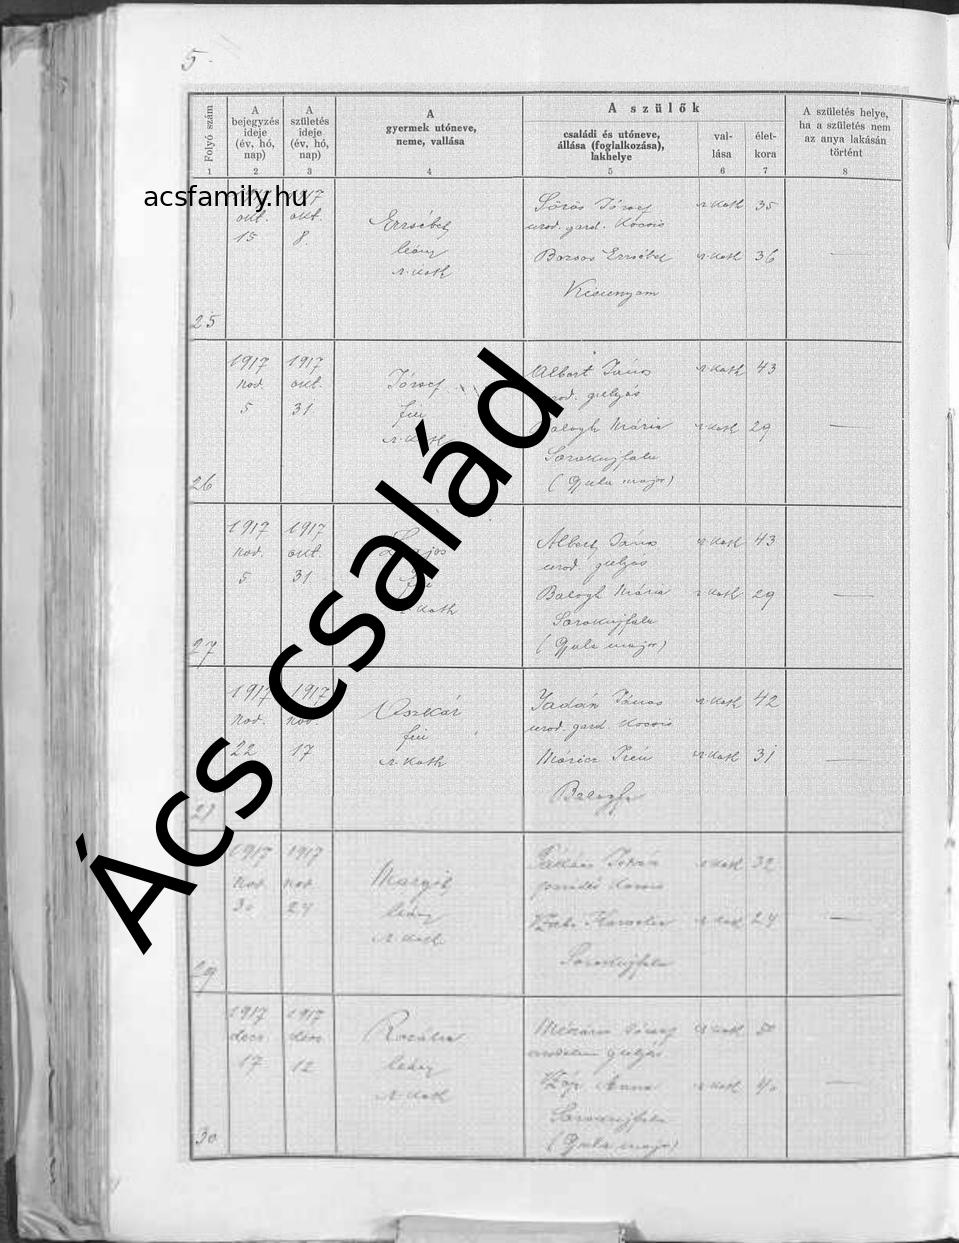 5.
Folyó szám
A
bejegyzés
ideje
(év, hó,
nap)
A
születés
ideje
(év, hó,
nap)
A
gyermek utóneve,
neme, vallása
A szülők
családi és utóneve,
állása (foglalkozása),
lakhelye
val-
lása
élet-
kora
A születés helye,
ha a születés nem
az anya lakásán
történt
1 2 3 4 5 6 7 8
acsfamily.hu
Ács család
25
okt.
15
okt.
8
Erzsébet
leány
r. kath
József
urod. gard. kocsis
Erzsébet
r. kath 35
r. kath 36
26
1917
nov.
5
1917
okt.
31
József
fiu
r. kath
Albert János
gulyás
Balogh Mária
Sorokujfalu
(Gyula major)
r. kath 43
r. kath 29
27
1917
nov.
5
1917
okt.
31
Lajos
fiu
r. kath
Albert János
urod. gulyás
Balogh Mária
Sorokujfalu
(Gyula major)
r. kath 43
r. kath 29
1917
nov.
22
1917
nov.
17
Oszkár
fiu
r. kath
János
urod. gard. kocsis
Móricz Irén
r. kath 42
r. kath 31
29
1917
nov.
30
1917
nov.
Margit
leány
r. kath
István
kocsis
Sorokujfalu
r. kath 32
r. kath
30
1917
decz.
17
1917
decz.
12
Rozália
leány
r. kath
Mészáros József
gulyás
Anna
Sorokujfalu
(Gyula major)
r. kath 50
r. kath 40